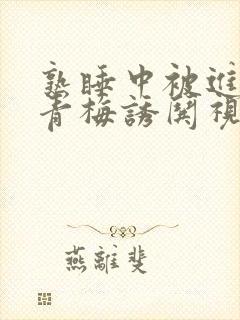 熟睡中被進
青梅誘関視
燕離斐